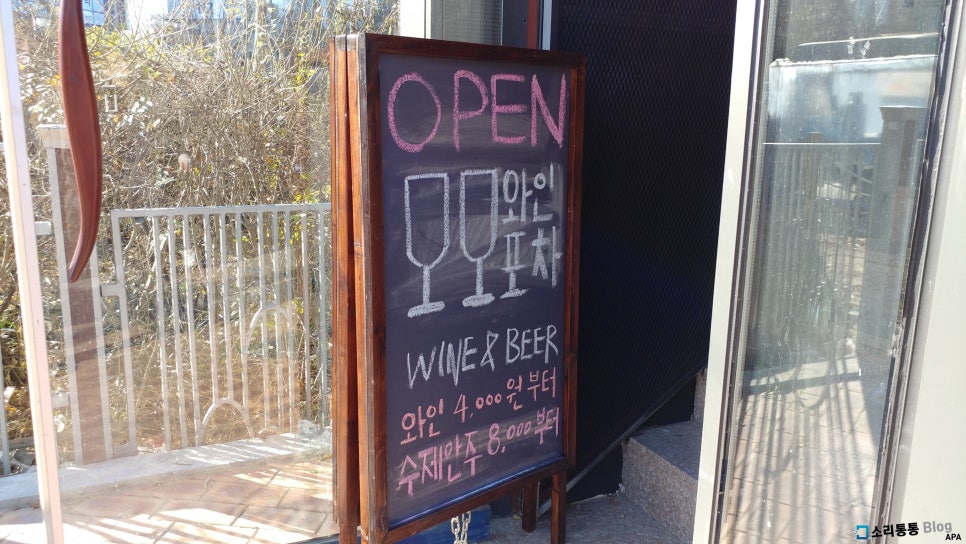 OPEN
와인
포차
WINE & BEER
와인 4,000원 부터
수제안주 8,000부터
소리통통 Blog
APA